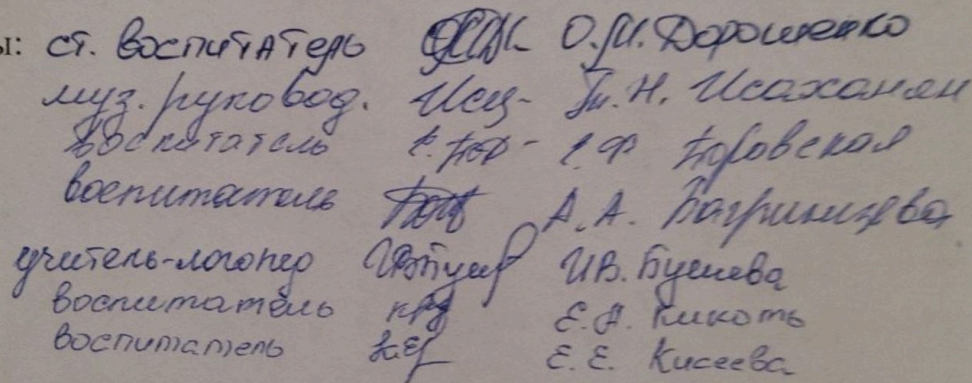 ы: ст. воспитатель О.М. Дорошенко
муз. руковод. Н. Исаханян
воспитатель Ф Боровская
воспитатель А.А. Багринцева
учитель-логопед И.В. Бушева
воспитатель Е.А. Кикоть
воспитатель Е.Е. Кисеева